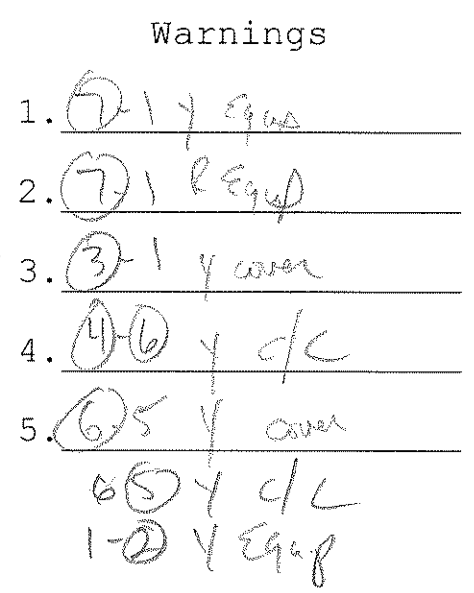 Warnings
1. 7-1 Y Equip
2. 7-1 R Equip
3. 3-1 Y cover
4. 4-6 Y c/c
5. 6-5 Y cover
6-5 Y c/c
1-2 Y Equip